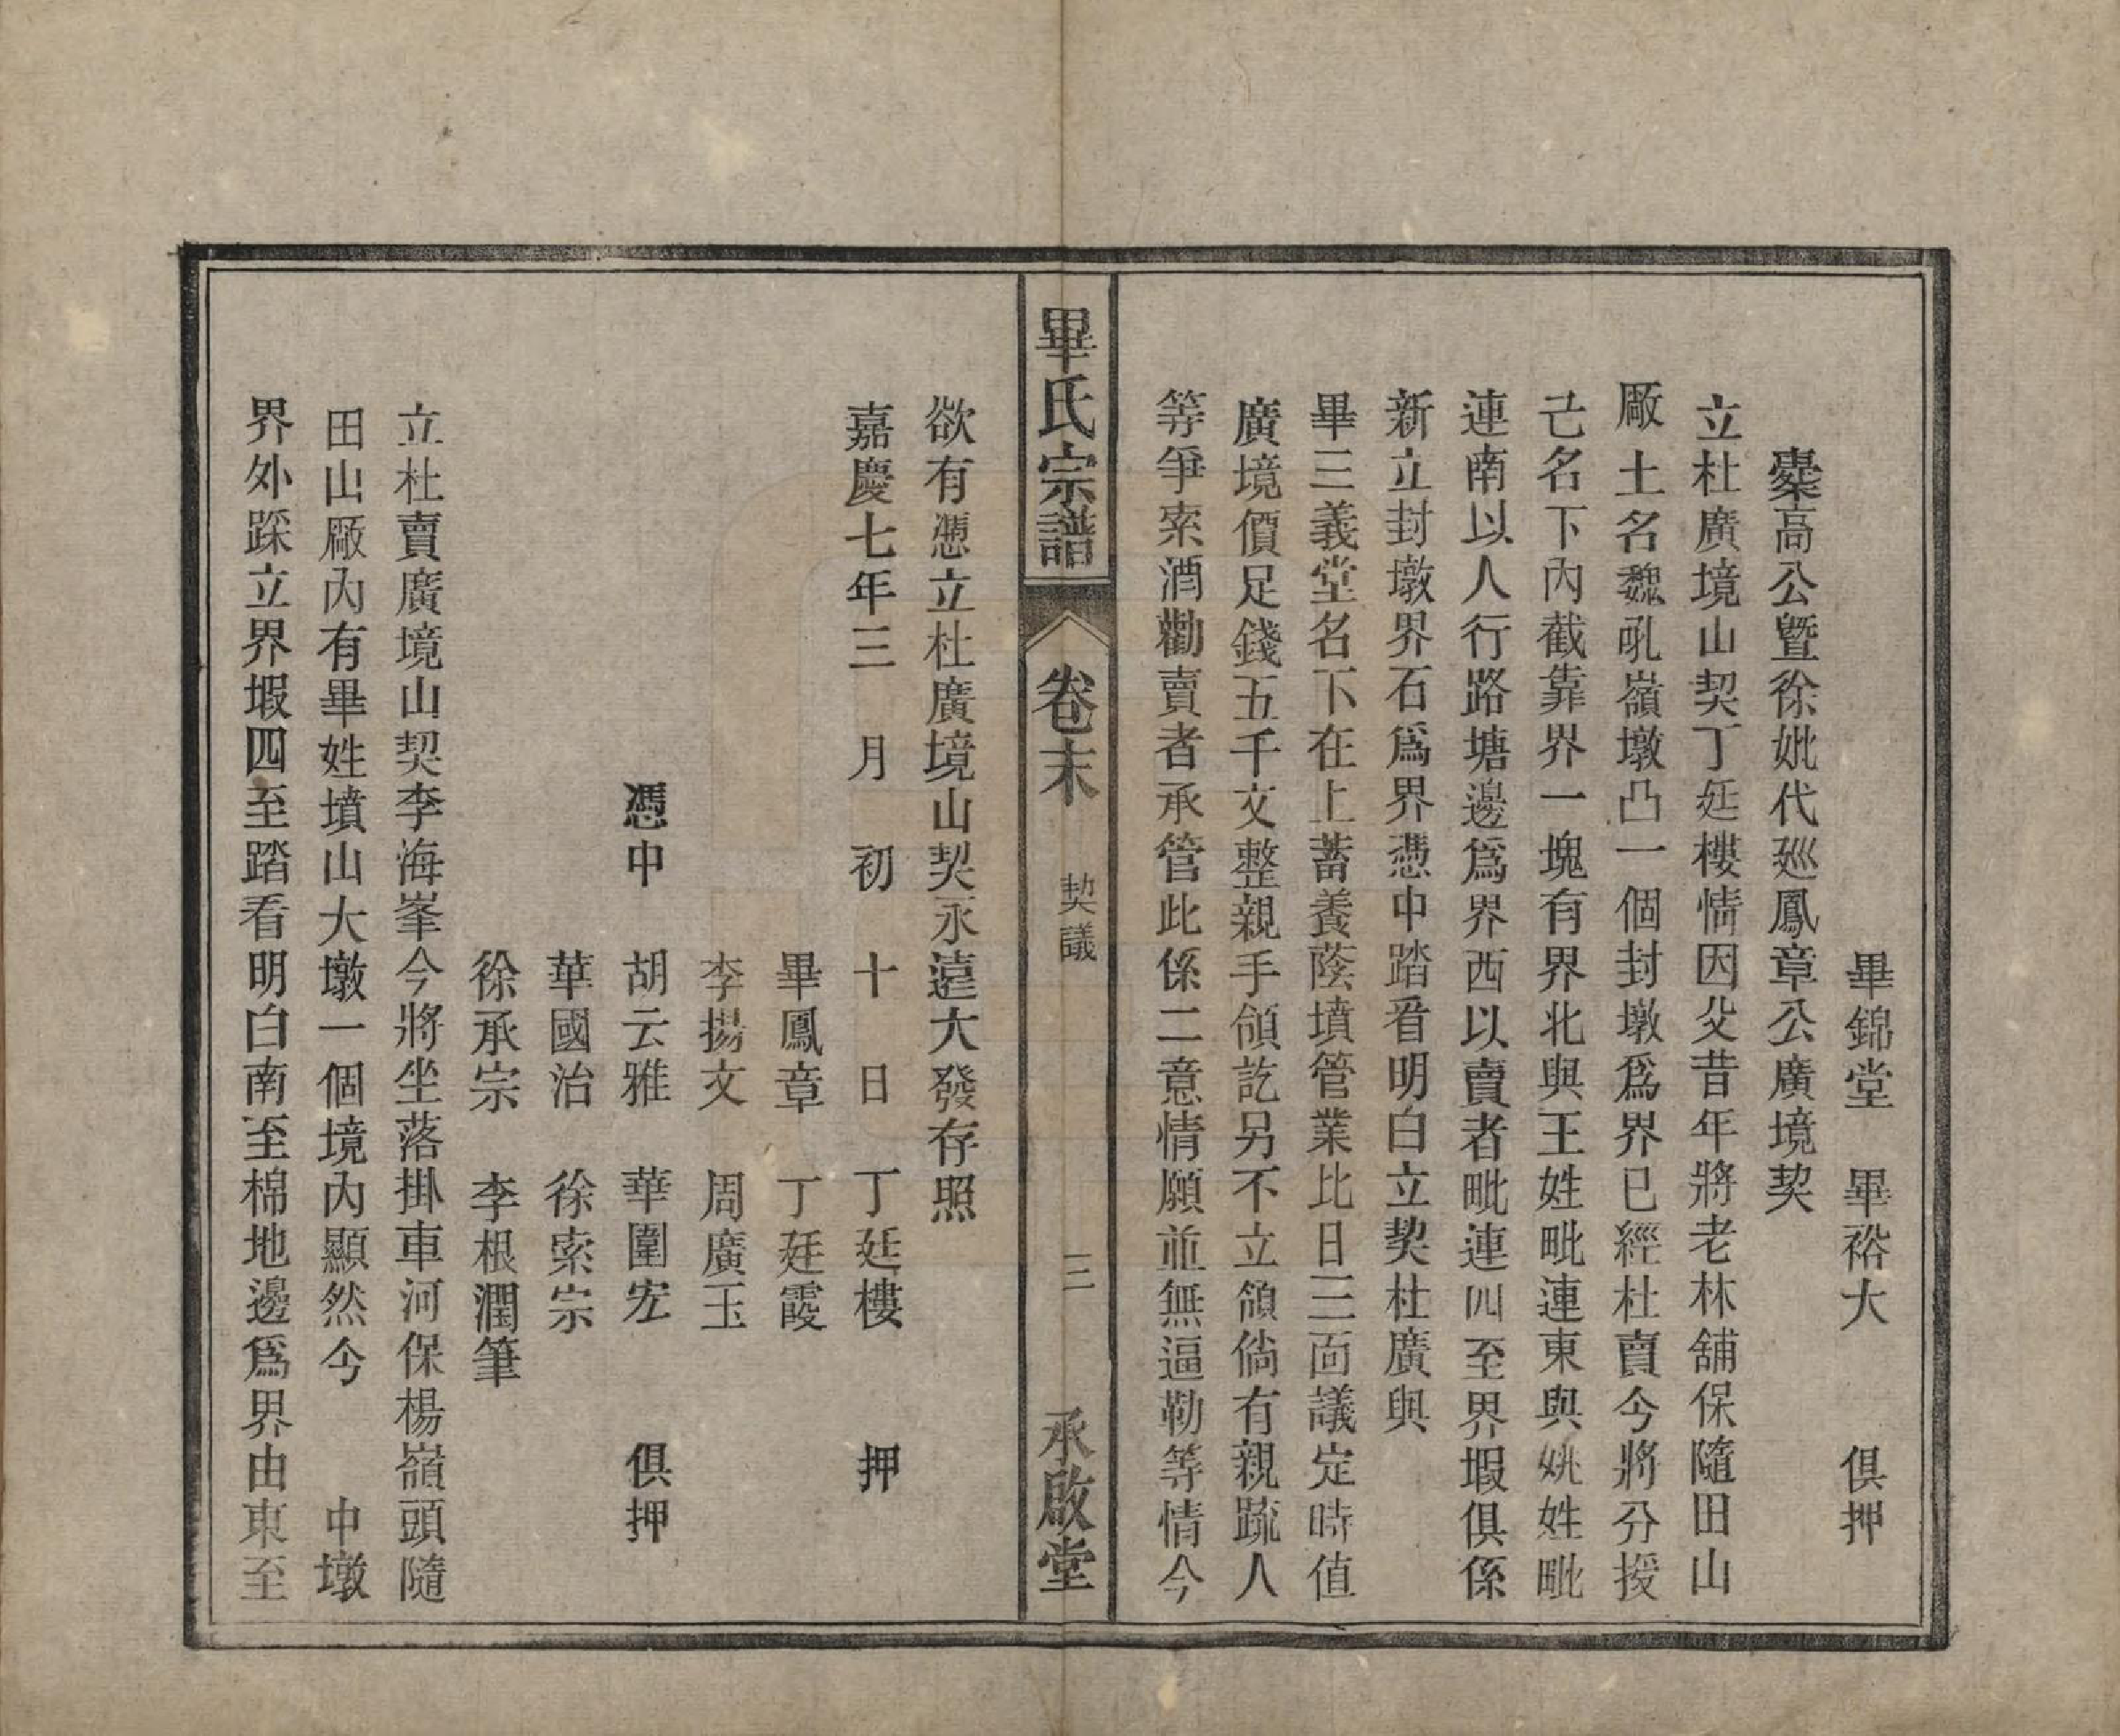 畢錦堂　畢裕大　俱押
高公暨徐妣代巡鳳章公廣境契
立杜廣境山契丁廷樓情因父昔年將老林舖保隨田山
厰土名魏吼嶺墩凸一個封墩爲界已經杜賣今將分授
己名下內截靠界一塊有界北與王姓毗連東與姚姓毗
連南以人行路塘邊爲界西以賣者毗連四至界塅俱係
新立封墩界石爲界憑中踏看明白立契杜廣與
畢三義堂名下在上蓄養蔭墳管業比日三面議定時值
廣境價足錢五千文整親手領訖另不立領倘有親疏人
等爭索酒勸賣者承管此係二意情願並無逼勒等情今
畢氏宗譜　卷末　契議　三　承啟堂
欲有憑立杜廣境山契永遠大發存照
嘉慶七年三　月　初　十　日　丁廷樓　押
畢鳳章　丁廷霞
李揚文　周廣玉
憑中　胡云雅　華圍宏　俱押
華國治　徐索宗
徐承宗　李根潤筆
立杜賣廣境山契李海峯今將坐落掛車河保楊嶺頭隨
田山厰內有畢姓墳山大墩一個境內顯然今　中墩
界外踩立界塅四至踏看明白南至棉地邊爲界由東至